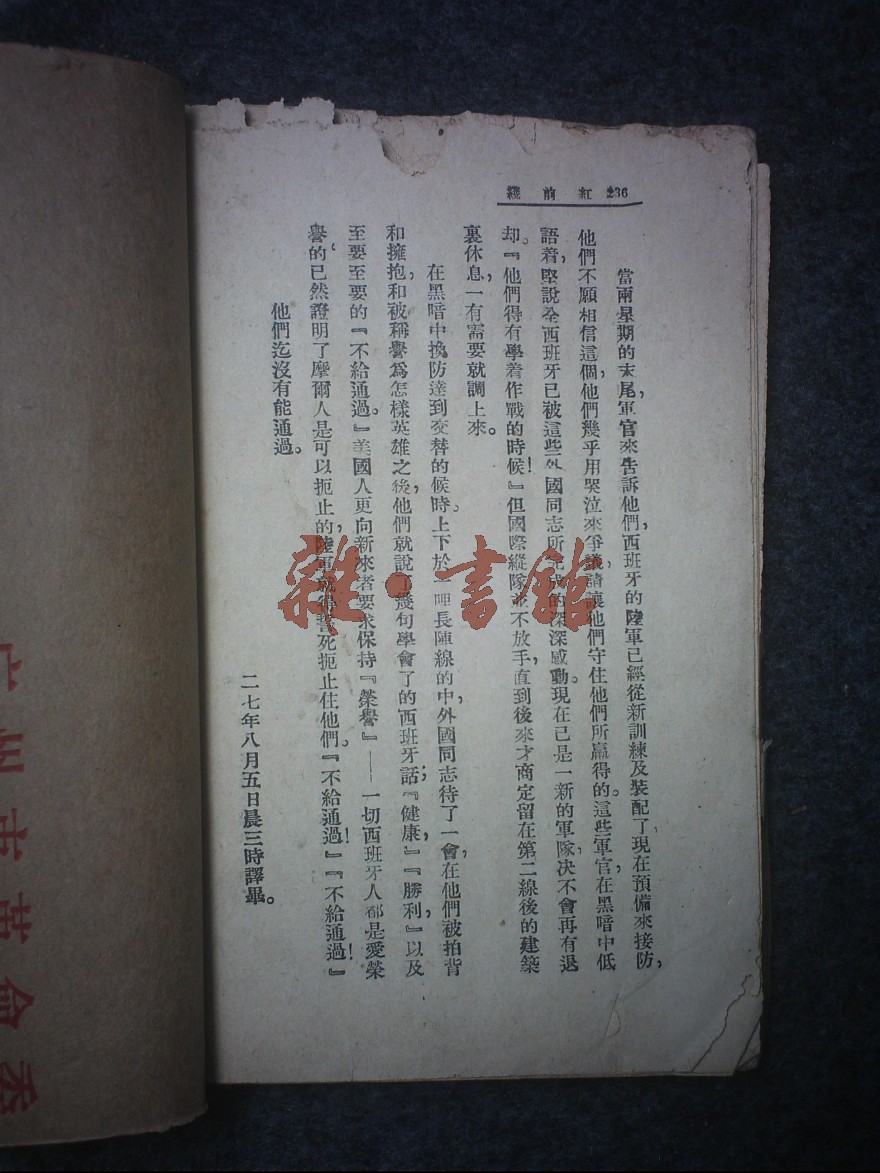 236 紅前綫
當兩星期的末尾,軍官來告訴他們,西班牙的陸軍已經從新訓練及裝配了,現在預備來接防,
他們不願相信這個,他們幾乎用哭泣來爭議,請讓他們守住他們所贏得的。這些軍官在黑暗中低
語着,堅說全西班牙已被這些外國同志所完成的深深感動。現在已是一新的軍隊,決不會再有退
却。『他們得有學着作戰的時候!』但國際縱隊並不放手,直到後來才商定留在第二線後的建築
裏休息,一有需要就調上來。
在黑暗中換防達到交替的候時。上下於 哩長陣線的中外國同志待了一會,在他們被拍背
和擁抱,和被稱譽爲怎樣英雄之後,他們就說了幾句學會了的西班牙話;『健康』,『勝利』,以及
至要至要的『不給通過。』美國人更向新來者要求保持『榮譽』——一切西班牙人都是愛榮
譽的,已然證明了摩爾人是可以扼止的,陸軍就得誓死扼止住他們。『不給通過!』『不給通過!』
他們迄沒有能通過。
二七年八月五日晨三時譯畢。
雜·書館
广州市革命委